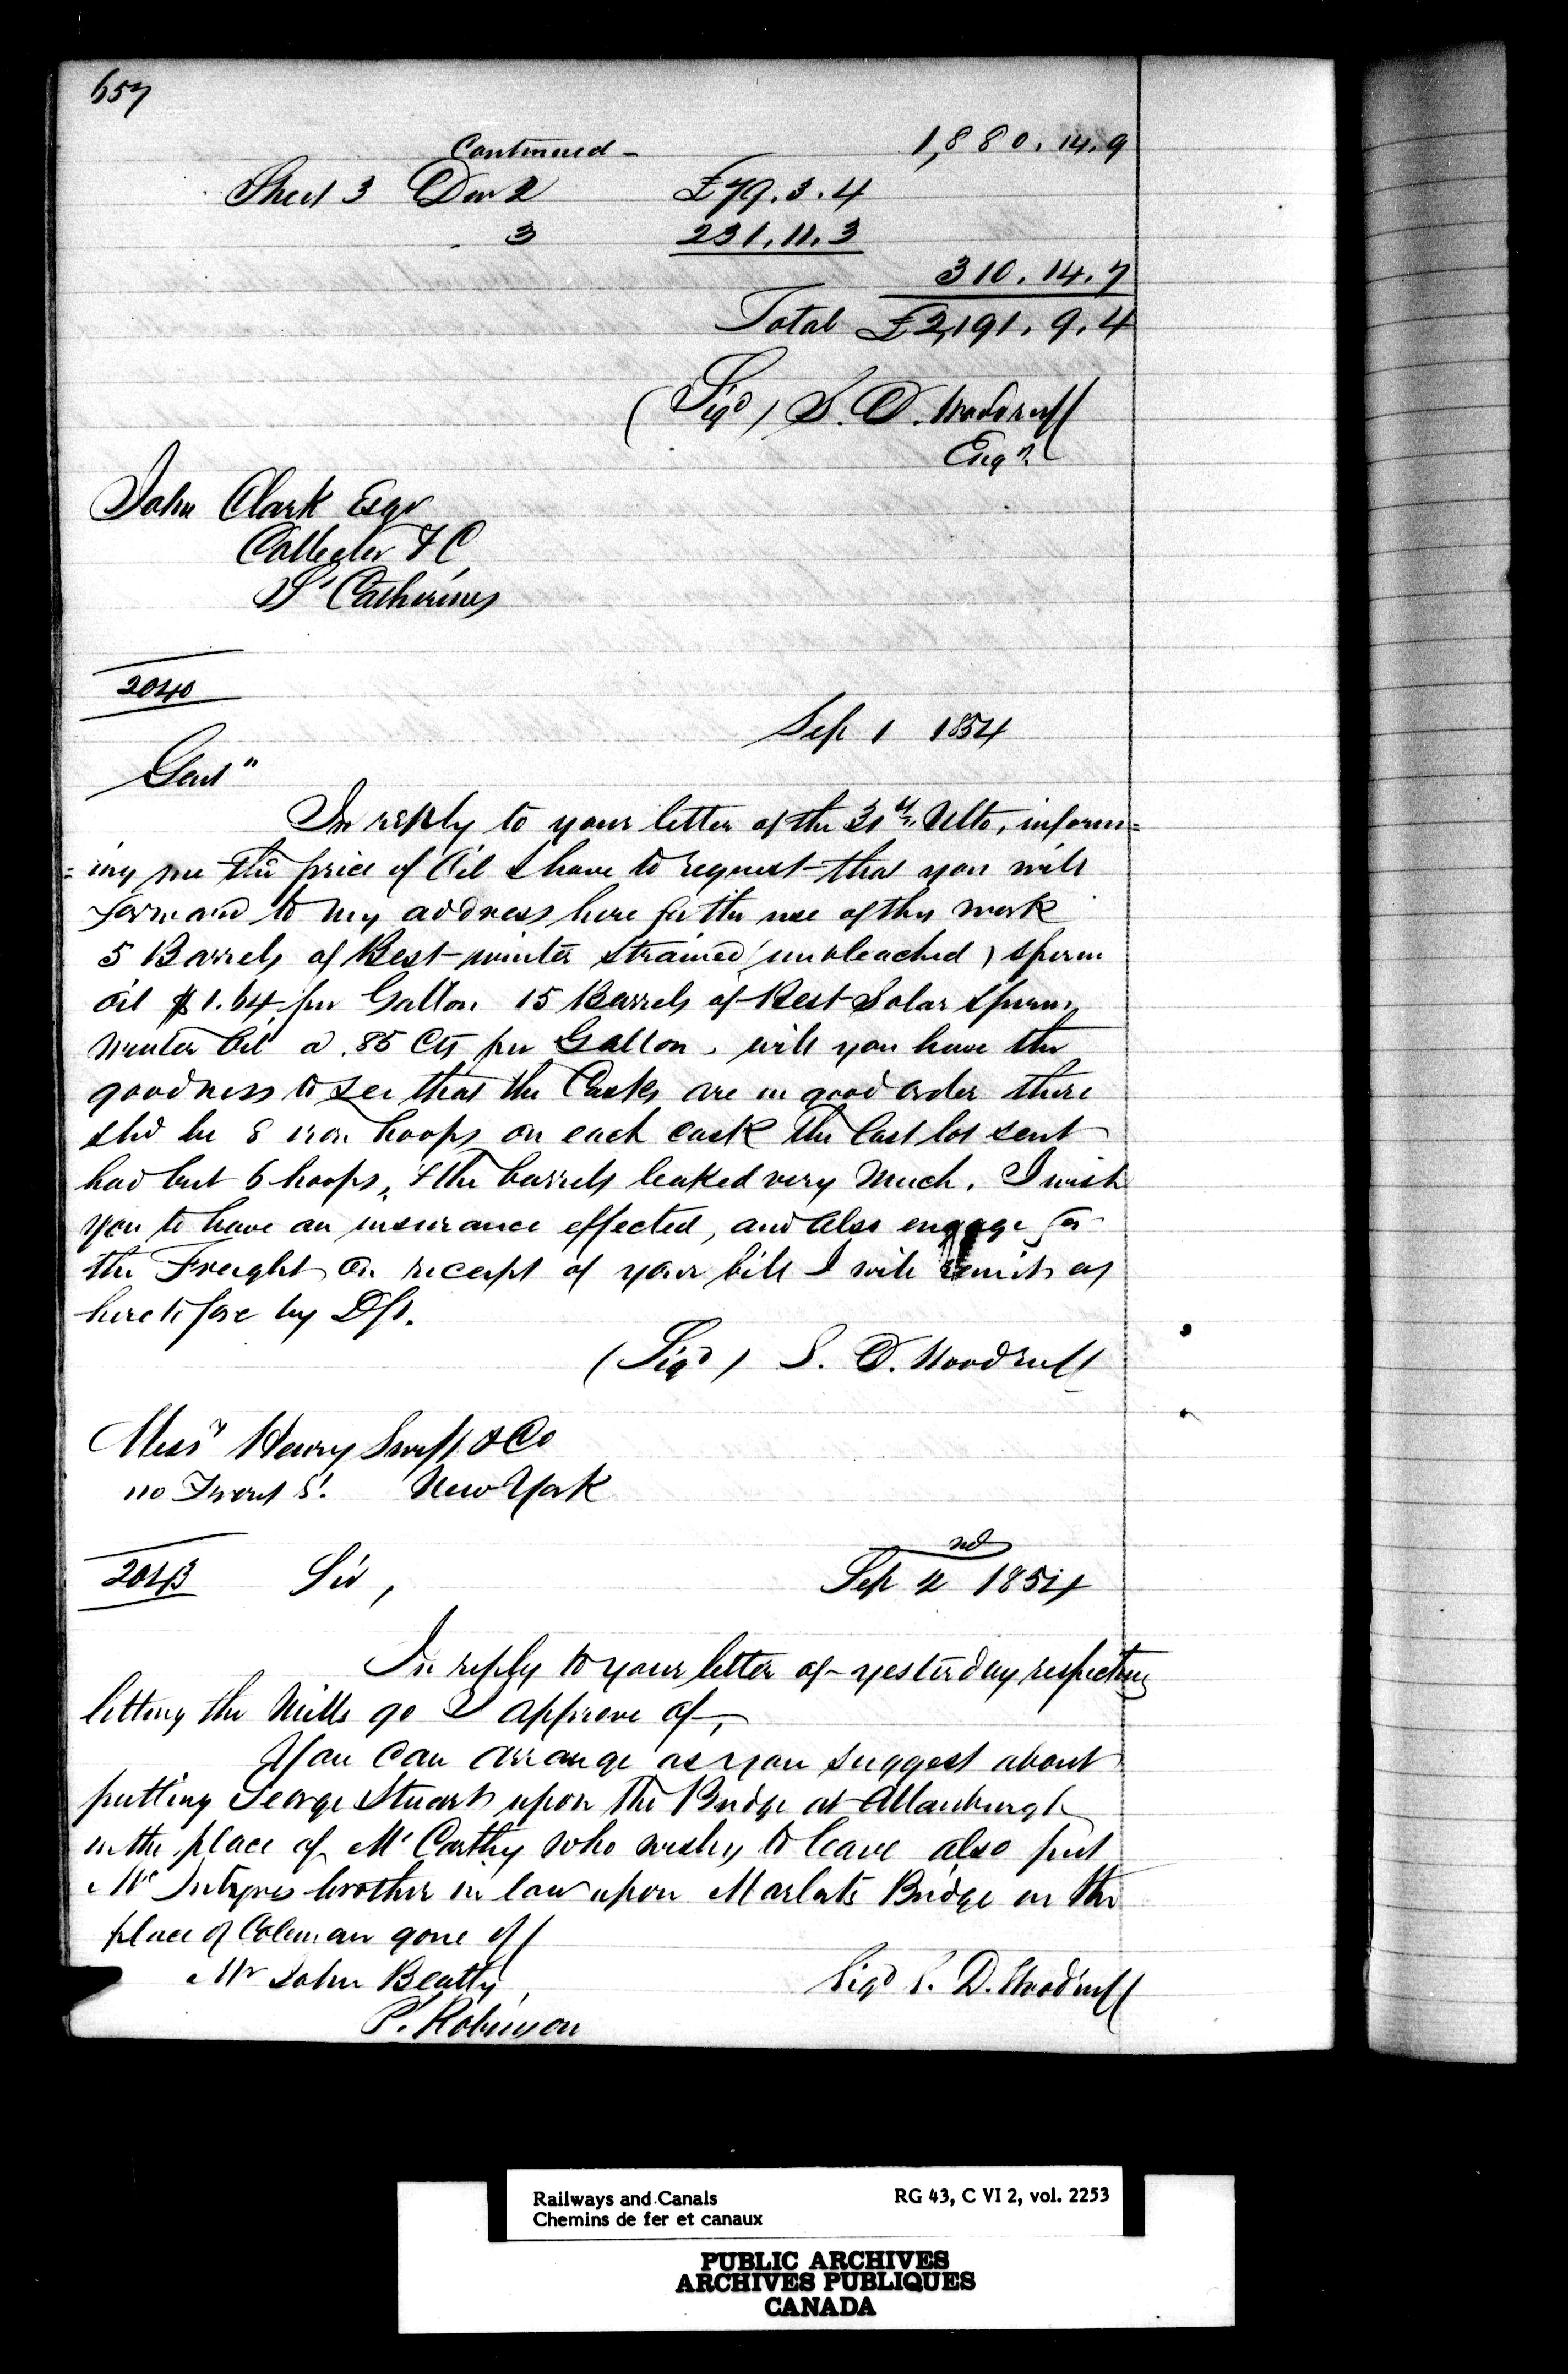 657
Continued - 1,880.14.9
Sheet 3 Div 2 £79.3.4
3 231.11.3
310.14.7
Total £2,191.9.4
(Sigd) S. D. Woodruff
Engr.
John Clark Esqr
Collector &C
St Catherines
2040
Sep 1 1854
Gentn
In reply to your letter of the 31st Ulto, inform=
=ing me the price of Oil I have to request that you will
forward to my address here for the use of this work
5 Barrels of Best winter strained (unbleached) sperm
Oil $1.64 per Gallon 15 Barrels of Best Solar sperm
Winter Oil a .85 Cts per Gallon. will you have the
goodness to see that the Casks are in good order there
shd be 8 iron hoops on each cask The last lot sent
had but 6 hoops, & the barrels leaked very much. I wish
you to have an insurance effected, and also engage for
the Freight. On receipt of your bill I will remit as
heretofore by Dft.
(Sigd) S. D. Woodruff
Messrs Henry Swift & Co
110 Front St. New York
2043 Sir, Sep 2nd 1854
In reply to your letter of yesterday respecting
letting the Mills go I approve of,
You can arrange as you suggest about
putting George Stuart upon the Bridge at Allanburgh
in the place of McCarthy who wishes to leave also put
McIntyres brother in law upon Marlats Bridge in the
place of Coleman gone off
Mr John Beatty, Sigd S. D. Woodruff
P. Robinson
Railways and Canals RG 43, C VI 2, vol. 2253
Chemins de fer et canaux
PUBLIC ARCHIVES
ARCHIVES PUBLIQUES
CANADA